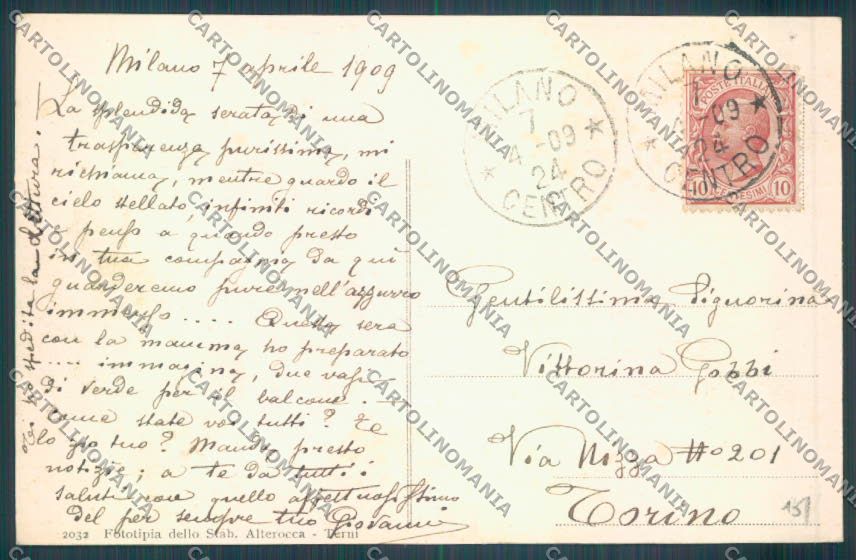 Milano 7 aprile 1909
La splendida serata di una
trasparenza purissima, mi
richiama, mentre guardo il
cielo stellato, infiniti ricordi
e penso a quando presto
in tua compagnia da qui
guarderemo pure nell'azzurro
immenso .... Questa sera
con la mamma ho preparato
.... immagina, due vasi
di verde per il balcone. —
Come state voi tutti? E
lo zio tuo? Manda presto
notizie; a te da tutti i
saluti con quello affettuosissimo
del per sempre tuo Giovanni
Ti ho spedita la lettura. —
2032 Fototipia dello Stab. Alterocca - Terni
MILANO
7
4 -09
24
* CENTRO *
MILANO
7
-09
24
* CENTRO *
POSTE ITALIANE
10 CENTESIMI 10
Gentilissima Signorina
Vittorina Gobbi
Via Nizza No 201
Torino
15
CARTOLINOMANIA